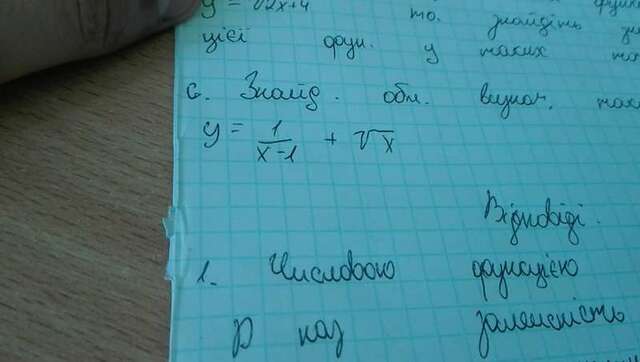 y = √2x+4 то. знайдіть
цієї фун. у таких
6. Знайд. обл. визнач.
y = 1/(x-1) + √x
Відповіді.
1. Числовою функцією
D наз залежність